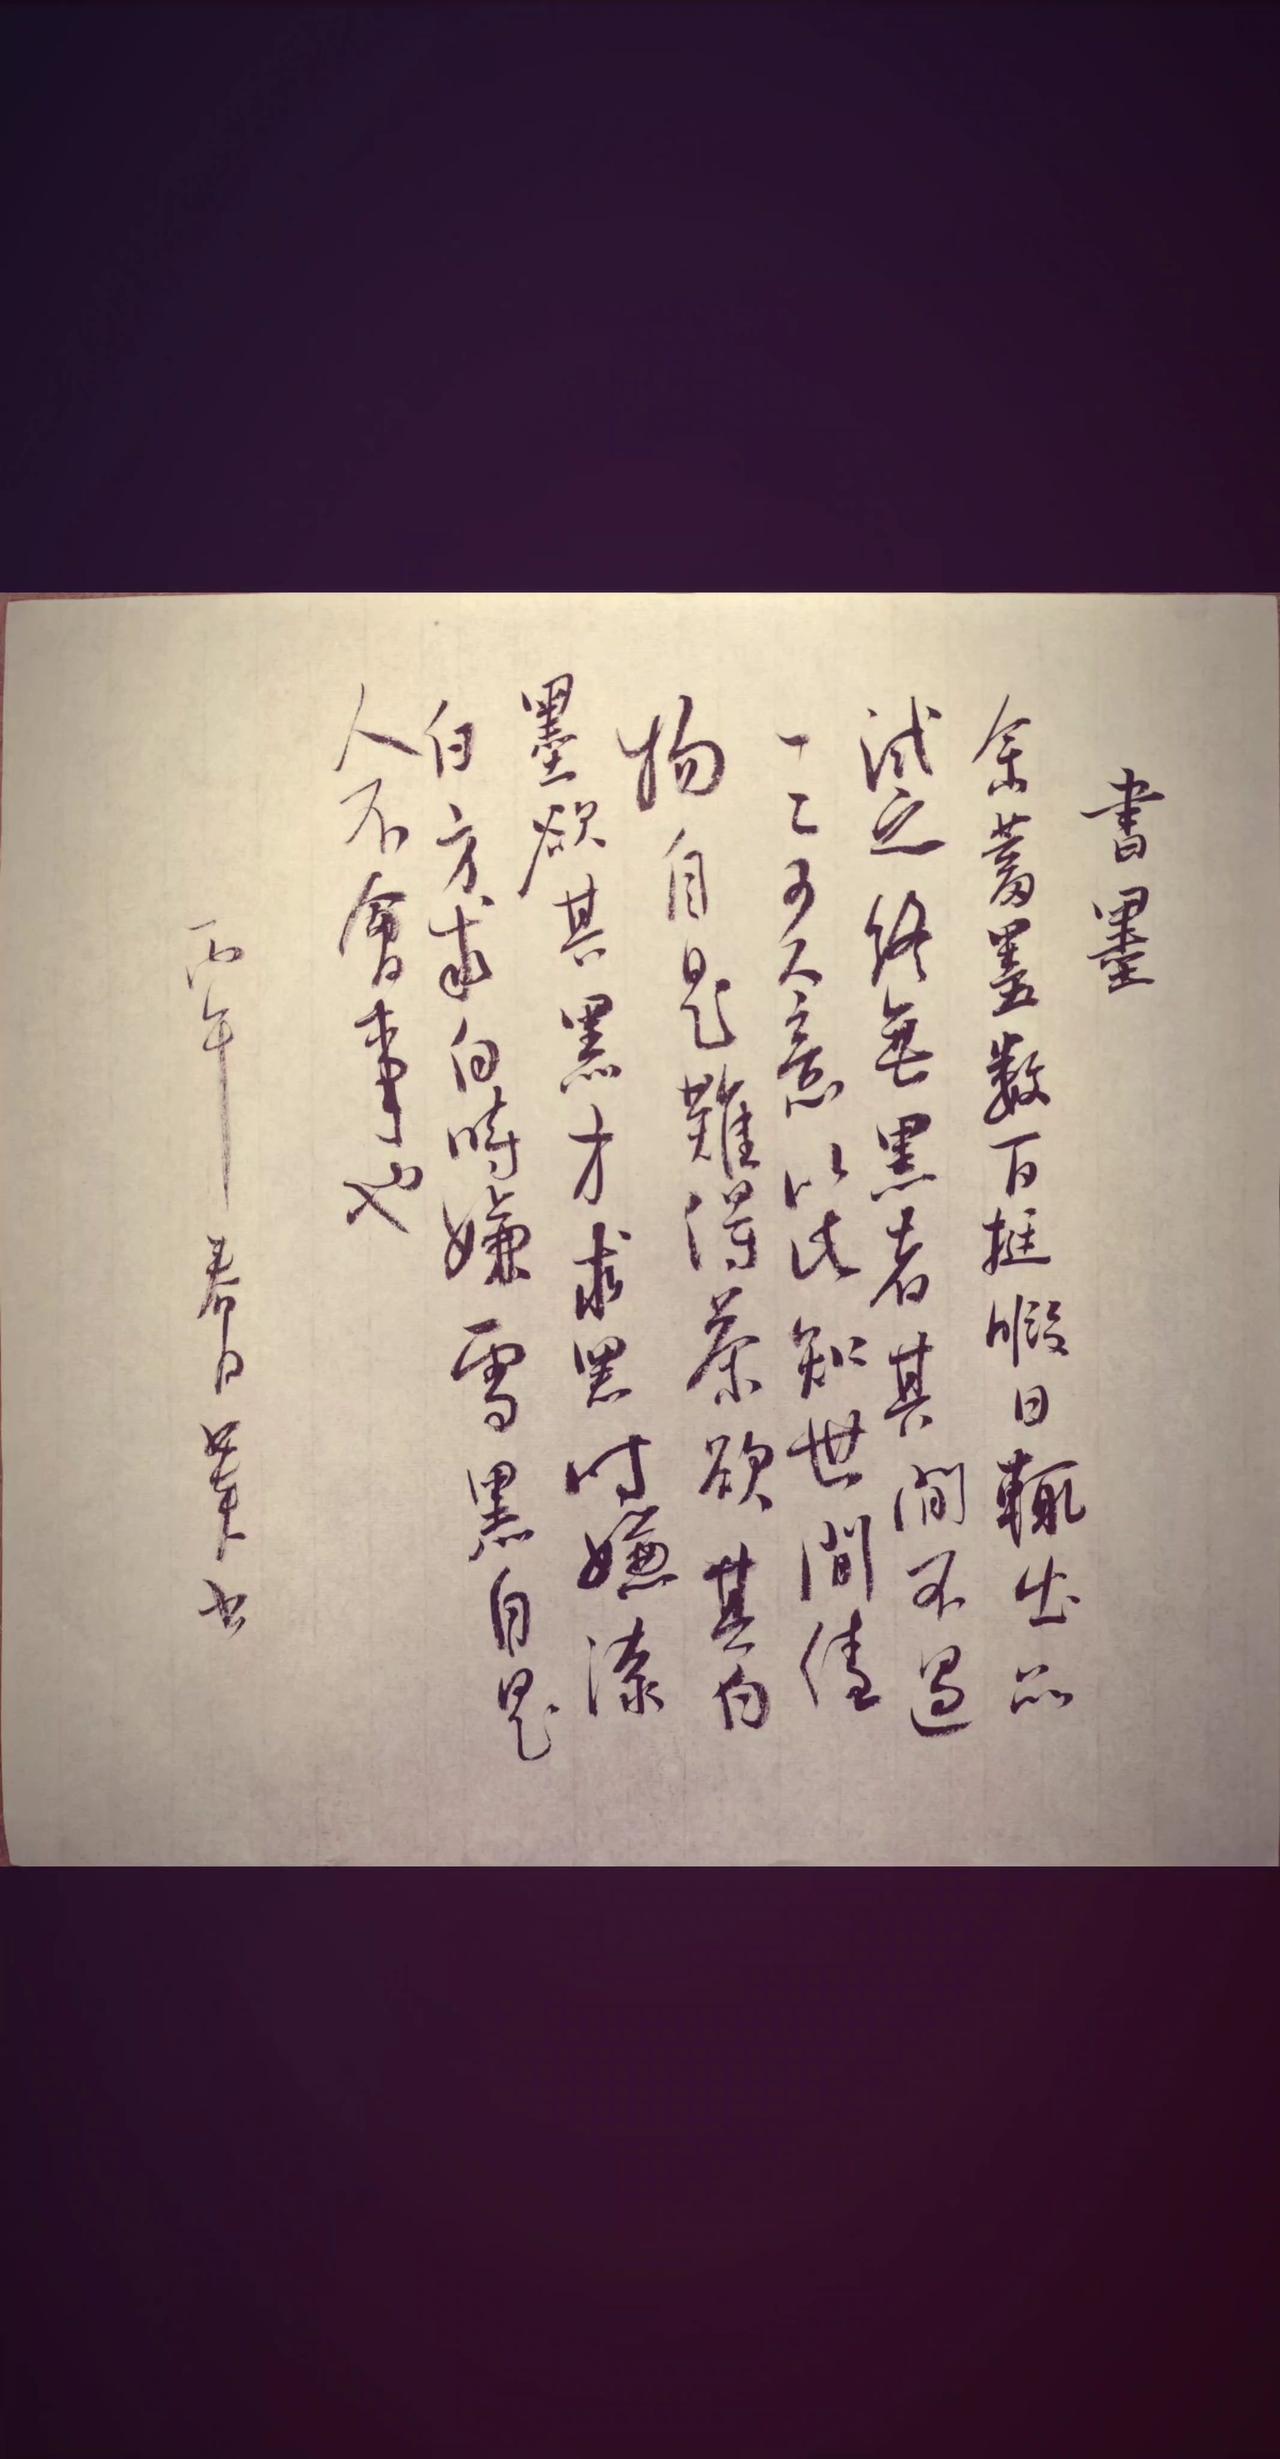 書墨
余蓄墨數百挺暇日輒出品
試之終無黑者其間不過
一二可人意以此知世間佳
物自是難得茶欲其白
墨欲其黑方求黑时嫌漆
白方求白時嫌雪黑自是
人不會事也
丙午春日